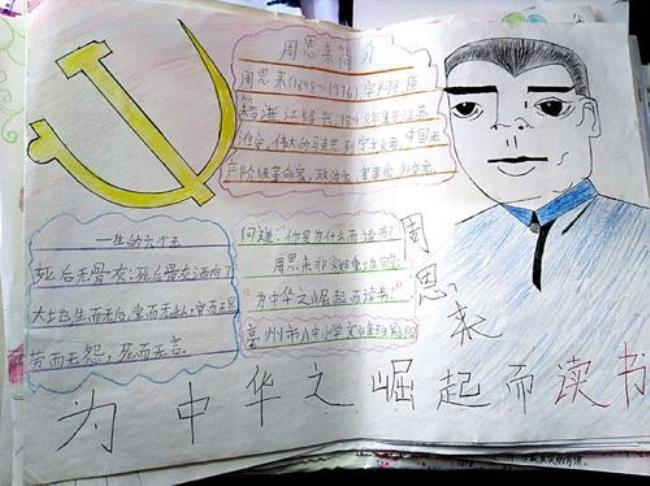 周恩来简介
周恩来(1898—1976),字翔宇,原
籍浙江绍兴,1898年生于江苏
淮安,伟大的马克思列宁主义者,中国无
产阶级革命家,政治家,军事家,外交家,
一生的六个无
死后无骨灰:死后骨灰洒向了
大地,生而无后,官而无
劳而无怨,死而无言.
问题:你是为什么而读书?
周恩来非常郑重的回答:
"为中华之崛起而读书!"
亳州市
周恩来
为中华之崛起而读书